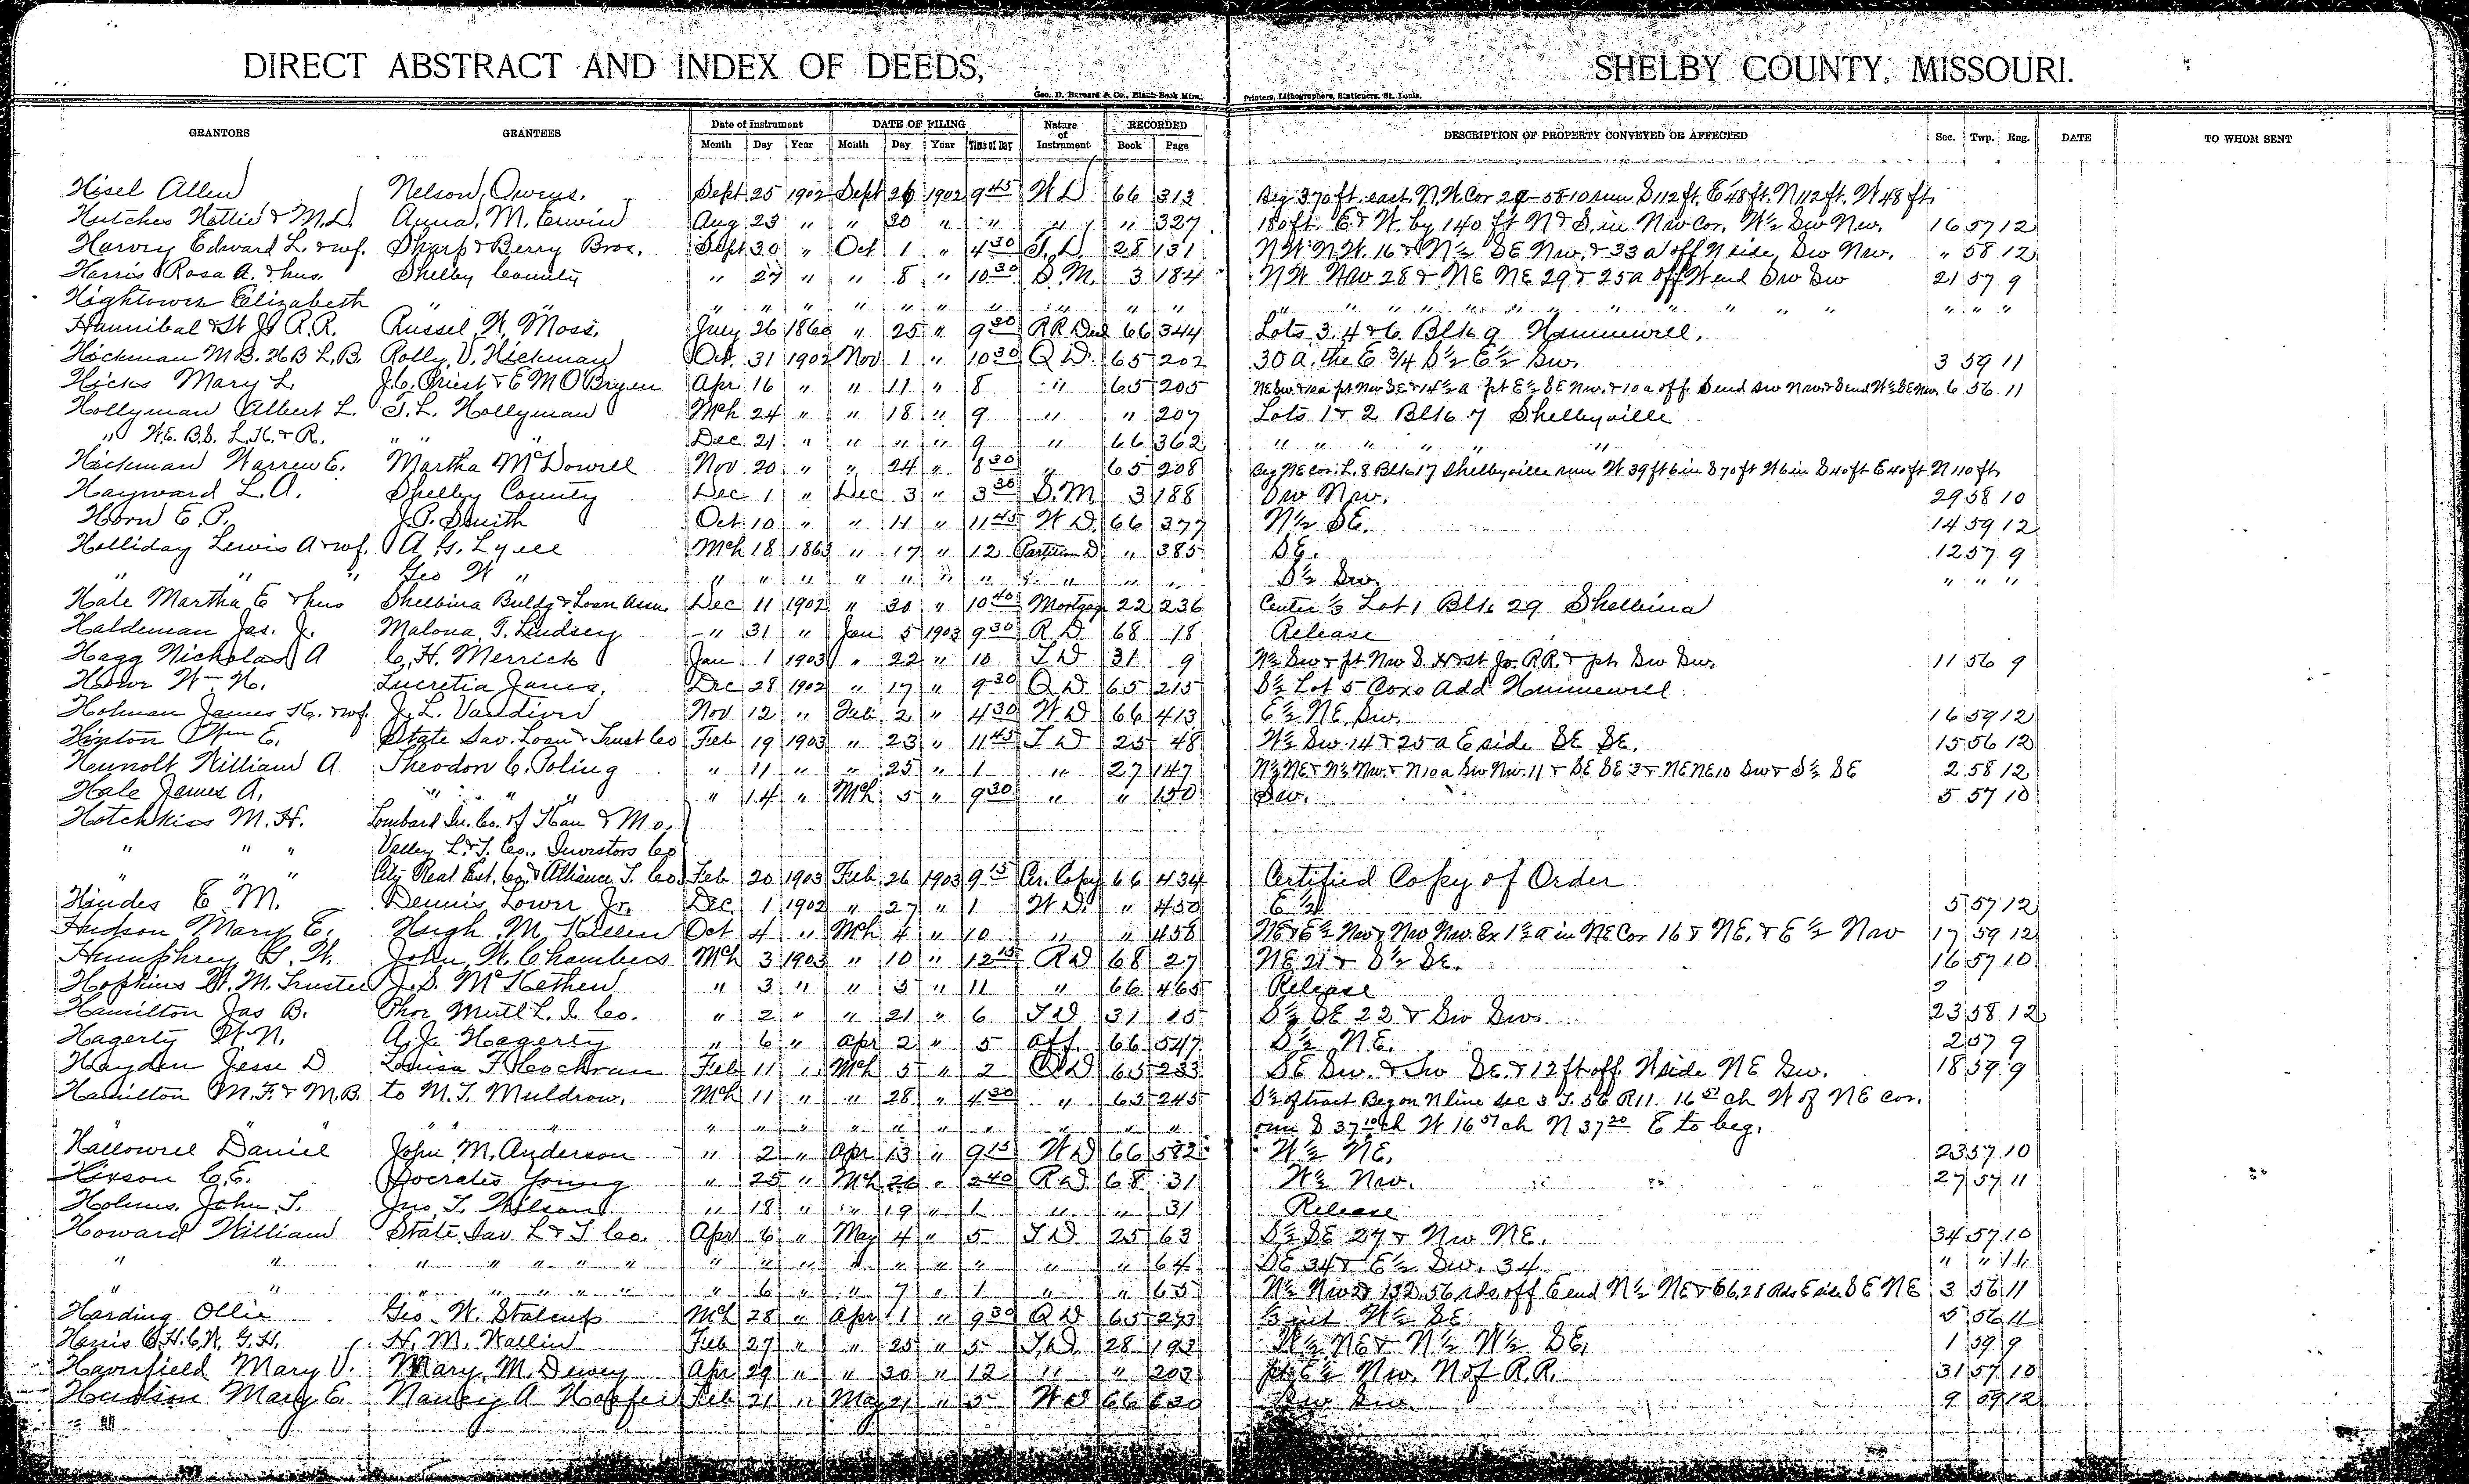 DIRECT ABSTRACT AND INDEX OF DEEDS, SHELBY COUNTY, MISSOURI.
Geo. D. Barnard & Co., Blank Book Mfrs., Printers, Lithographers, Stationers, St. Louis.
GRANTORS GRANTEES Date of Instrument DATE OF FILING Nature of Instrument RECORDED DESCRIPTION OF PROPERTY CONVEYED OR AFFECTED Sec. Twp. Rng. DATE TO WHOM SENT
Month Day Year Month Day Year Time of Day Book Page
Hisel Allen Nelson Owens. Sept 25 1902 Sept 26 1902 9 45 W D 66 313 Beg 370 ft. east N.W. Cor 29-58-10 run S 112 ft. E 48 ft. N 112 ft. W 48 ft.
Hutches Hattie & M.L. Anna M. Erwin Aug 23 " " 30 " " " " 327 180 ft. E & W. by 140 ft N & S. in Nw Cor. W ½ Sw Nw. 16 57 12
Harvey Edward L. & wf. Sharp & Berry Bros. Sept 30 " Oct 1 " 4 30 T. D. 28 131 N W. N.W. 16 & N ½ SE Nw. & 33 a off N side Sw Nw. " 58 12
Harris Rosa A. & hus. Shelby County " 27 " " 8 " 10 30 S. M. 3 184 N W Nw 28 & NE NE 29 & 25 a off W end Sw Sw 21 57 9
Hightower Elizabeth " " " " " " " " " " " " " " " " "
Hannibal & St Jo R.R. Russel W. Moss. July 26 1860 " 25 " 9 30 RR Deed 66 344 Lots 3, 4 & 6. Blk 9 Hunnewell.
Hickman M B. H B L. B. Rolly V. Hickman Oct. 31 1902 Nov 1 " 10 30 Q D. 65 202 30 a. the E ¾ S ½ E ½ Sw. 3 59 11
Hicks Mary L. J. C. Priest & E M O'Bryen Apr 16 " " 11 " 8 " 65 205 NE Sw & 10 a pt Nw SE & 14 ½ a pt E ½ SE Nw. & 10 a off S end Sw Nw & S end W ½ SE Nw. 6 56 11
Hollyman Albert L. T. L. Hollyman Mch 24 " " 18 " 9 " " 207 Lots 1 & 2 Blk 7 Shelbyville
" W.E. B.S. L.H. & R. " " Dec 21 " " " " 9 " 66 362 " " " " " "
Hickman Warren E. Martha McDowell Nov 20 " " 24 " 8 30 " 65 208 Beg NE cor. L. 8 Blk 17 Shelbyville run W 39 ft 6 in S 70 ft W 6 in S 40 ft E 40 ft N 110 ft.
Hayward L. A. Shelby County Dec 1 " Dec 3 " 3 30 S. M 3 188 Sw Nw. 29 58 10
Horn E. P. J. P. Smith Oct 10 " " 11 " 11 45 W D. 66 377 N ½ SE. 14 59 12
Holliday Lewis A & wf. A. G. Lyell Mch 18 1863 " 17 " 12 Partition D " 385 SE. 12 57 9
" " " Geo W " " " " " " " " " " " S ½ Sw. " " "
Hale Martha E & hus Shelbina Buldg & Loan Assn. Dec 11 1902 " 30 " 10 40 Mortgage 22 236 Center ⅓ Lot 1 Blk 29 Shelbina
Haldeman Jas. J. Malona T. Lindsey " 31 " Jan 5 1903 9 30 R D. 68 18 Release
Hagg Nicholas A C. H. Merrick Jan 1 1903 " 22 " 10 T D 31 9 W ½ Sw & pt Nw S. H & St Jo. R.R. & pt. Sw Sw. 11 56 9
Howe Wm H. Lucretia Janes. Dec 28 1902 " 17 " 9 30 Q D 65 215 S ½ Lot 5 Coxs Add Hunnewell
Holman James H. & wf. J. L. Vandiver Nov 12 " Feb 2 " 4 30 W D 66 413 E ½ NE Sw. 16 59 12
Hinton Wm E. State Sav. Loan & Trust Co Feb 19 1903 " 23 " 11 45 T D 25 48 W ½ Sw. 14 & 25 a E side SE SE. 15 56 12
Hunolt William A Theodore C. Poling " 11 " " 25 " 1 " 27 147 N ½ NE & N ½ Nw. & N 10 a Sw Nw. 11 & SE SE 3 & NE NE 10 Sw & S ½ SE 2 58 12
Hale James A. " " " " 14 " Mch 5 " 9 30 " " 150 Sw. 5 57 10
Hotchkiss M. H. Lombard In. Co. of Kan & Mo.
" " " Valley L. & T. Co., Investors Co
" " " City Real Est. Co. & Alliance T. Co. Feb 20 1903 Feb 26 1903 9 15 Cer. Copy 66 434 Certified Copy of Order
Hindes E M. Dennis Lower Jr. Dec 1 1902 " 27 " 1 W D. " 450 E ½ 5 57 12
Hudson Mary E. Hugh M. Killen Oct 4 " Mch 4 " 10 " " 458 NE & E ½ Nw & Nw Nw. Ex 1 ½ a in NE Cor 16 & NE. & E ½ Nw 17 59 12
Humphrey G. W. John W. Chambers Mch 3 1903 " 10 " 12 15 R D 68 27 NE 21 & S ½ SE. 16 57 10
Hopkins W. M. Trustee J. S. McKethen " 3 " " 5 " 11 " 66 465 Release
Hamilton Jas B. Phoe Mutl L. I. Co. " 2 " " 21 " 6 T D 31 15 S ½ SE 22 & Sw Sw. 23 58 12
Hagerty W. N. A. J. Hagerty " 6 " Apr 2 " 5 Aff. 66 547 S ½ NE. 2 57 9
Hayden Jesse D Louisa F. Cochran Feb 11 " Mch 5 " 2 Q D 65 233 SE Sw. & Sw SE. & 12 ft off W side NE Sw. 18 59 9
Hamilton M. F. & M. B. to M. T. Muldrow. Mch 11 " " 28 " 4 30 " 65 245 S ½ of tract Beg on N line Sec 3 T. 56 R 11. 16 57 ch W of NE cor.
" " " " " " " " " " " " " run S 37 10 ch W 16 57 ch N 37 20 E to beg.
Hallowell Daniel John M. Anderson " 2 " Apr 13 " 9 15 W D 66 582 W ½ NE. 23 57 10
Hixson C. E. Socrates Young " 25 " Mch 26 " 2 40 R D 68 31 W ½ Nw. 27 57 11
Holmes John T. Jno. T. Wilson " 18 " " 19 " 1 " " 31 Release
Howard William State Sav L & T Co. Apr 6 " May 4 " 5 T D 25 63 S ½ SE 27 & Nw NE. 34 57 10
" " " " " " " " " " " " " " " " 64 SE 34 & E ½ Sw. 34 " " 11
" " " " " " " " 6 " " 7 " 1 " " 65 N ½ Nw 2 132.56 rds off E end N ½ NE & 66.28 rds E side SE NE 3 56 11
Harding Ollie Geo. W. Stalcup Mch 28 " Apr 1 " 9 30 Q D 65 273 W ½ SE 5 56 11
Harris C. H. C. N. G. H. H. M. Wallin Feb 27 " " 25 " 5 T. D. 28 193 W ½ NE & N ½ W ½ SE. 1 59 9
Haverfield Mary V. Mary M. Dewey Apr 29 " " 30 " 12 " " 203 pt E ½ Nw. N of R.R. 31 57 10
Mary E. Nancy A Feb 21 " May 21 " 5 W D 66 630 Sw. 9 59 12